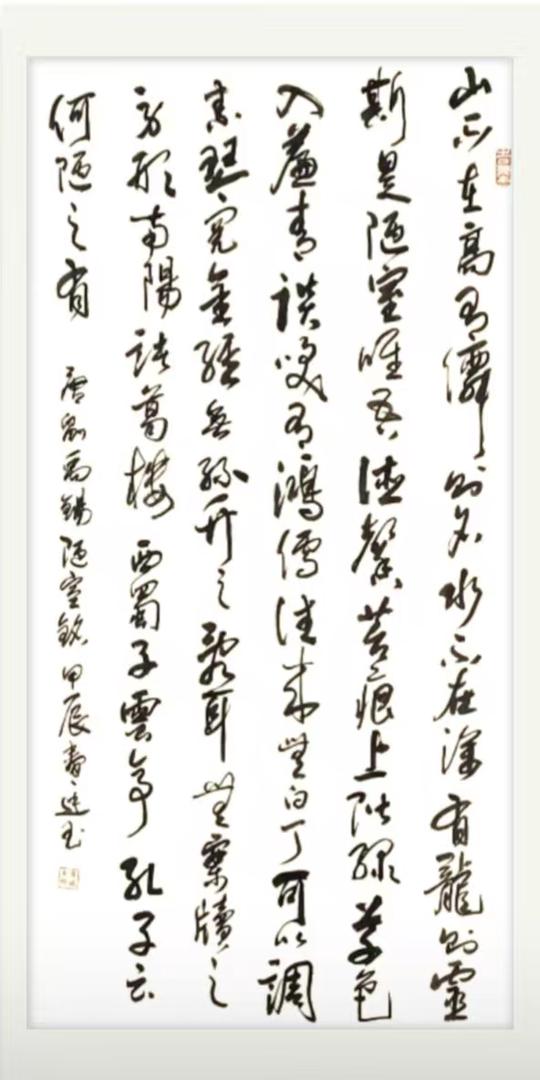 山不在高有僊則名水不在深有龍則靈
斯是陋室唯吾德馨苔痕上階綠草色
入簾青談咲有鴻儒往來無白丁可以調
素琴閱金經無絲竹之亂耳無案牘之
勞形南陽諸葛樓西蜀子雲亭孔子云
何陋之有
唐劉禹錫陋室銘甲辰春廷玉